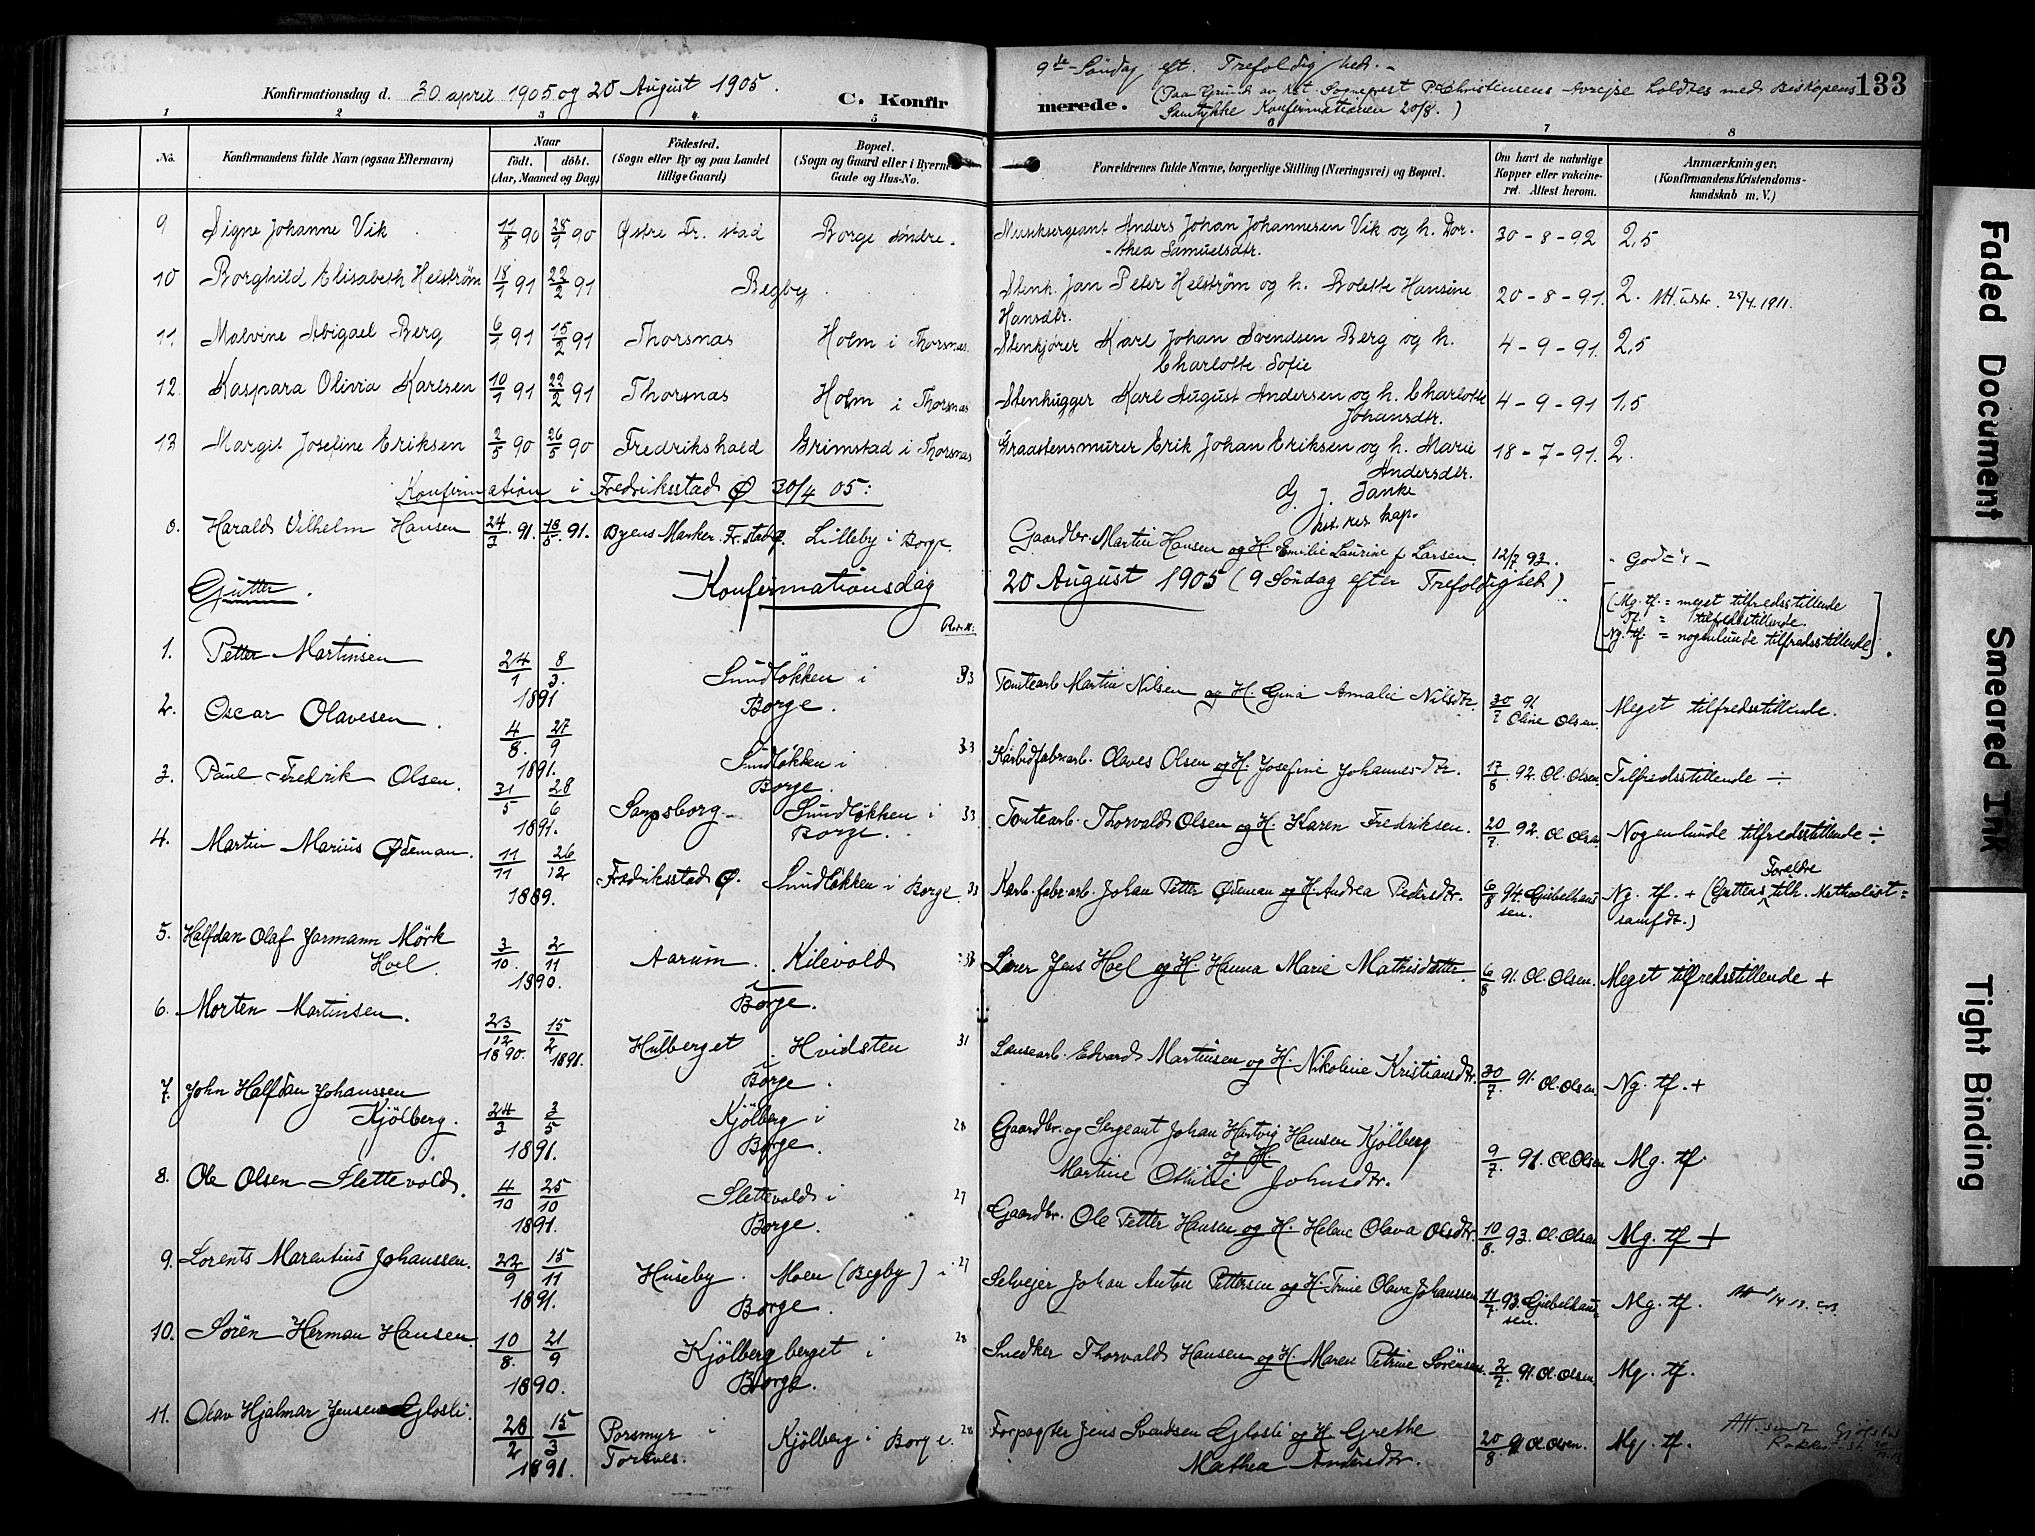 Konfirmationsdag d. 30 april 1905 og 20 August 1905. C. Konfir
9de Søndag eft. Trefoldighed. -
merede. (Paa Grund av Sogneprest Christensens Avrejse holdtes med Biskopens 133
Samtykke Konfirmationen 20/8.)
1 2 3 4 5 6 7 8
No. Konfirmandens fulde Navn (ogsaa Efternavn) Naar født. døbt. (Aar, Maaned og Dag) Fødested. (Sogn eller By og paa Landet tillige Gaard) Bopæl. (Sogn og Gaard eller i Byerne Gade og Hus-No. Forældrenes fulde Navne, borgerlige Stilling (Næringsvei) og Bopæl. Om havt de naturlige Kopper eller vakcineret. Attest herom. Anmærkninger. (Konfirmandens Kristendomskundskab m. V.)
9 Signe Johanne Vik 11/8 90 28/9 90 Østre Fr.stad Borge søndre. Musiksergeant Anders Johan Johannesen Vik og h. Dor-
-thea Samuelsdtr. 30-8-92 2,5
10 Borghild Elisabeth Helstrøm 18/1 91 22/2 91 Begby Stenh. Jan Peter Helstrøm og h. Bolette Hansine
Hansdtr. 20-8-91. 2. Att. udst. 25/4 1911.
11 Malvine Abigael Berg 6/1 91 15/2 91 Thorsnæs Holm i Thorsnæs. Stenkjører Karl Johan Svendsen Berg og h.
Charlotte Sofie 4-9-91. 2,5
12 Kaspara Olivia Karlsen 10/1 91 22/2 91 Thorsnæs Holm i Thorsnæs Stenhugger Karl August Andersen og h. Charlotte
Johansdtr. 4-9-91 1,5
13 Margit Josefine Eriksen 2/5 90 26/5 90 Fredrikshald Grimstad i Thorsnæs Graastensmurer Erik Johan Eriksen og h. Marie
Andersdtr. 18-7-91. 2.
Konfirmation i Fredriksstad Ø 30/4 05: G. J. Janke
kst. res. kap.
0. Harald Vilhelm Hansen 24/3 91. 18/5 91. Byens Marker Fr.stad Ø. Lilleby i Borge. Gaardbr. Martin Hansen og H. Emilie Laurine f. Larsen 12/7 93. - Godt -
Gutter. Konfirmationsdag 20 August 1905 (9 Søndag efter Trefoldighed).
(Mg. tf. = meget tilfredsstillende
Tf. = tilfredsstillende.
Ng. tf. = nogenlunde tilfredsstillende)
1. Petter Martinsen 24/1 8/3. 1891 Sundløkken i
Borge. 33 Tomtearb. Martin Nilsen og H. Gina Amalie Nilsdtr. 30/7 91 Oline Olsen Meget tilfredsstillende.
2. Oscar Olavesen. 4/8. 27/9 1891. Sundløkken i
Borge. 33 Karbidfabr.arb. Olaves Olsen og H. Josefine Johannesdtr. 17/8 92. Ol. Olsen Tilfredsstillende ÷
3. Paul Fredrik Olsen. 31/5 28/6 1891. Sarpsborg Sundløkken i
Borge. 33 Tomtearb. Thorvald Olsen og H. Karen Fredriksen. 20/7 92. Ol Olsen Nogenlunde tilfredsstillende ÷
4. Martin Marius Ødeman. 11/11 26/12 1889. Fredriksstad Ø. Sundløkken i Borge. 33 Karb.fabr.arb. Johan Petter Ødeman og H. Andrea Pedersdtr. 6/8 94. Giebelhausen. Ng. tf. + (Guttens Forældre tilh. Methodist=
samfdt.)
5. Halfdan Olaf Jarmann Mörk
Hoel. 3/10. 2/11 1890. Aarum Kilevold
i
Borge. 33 Lærer Jens Hoel og H. Hanna Marie Mathisdatter 6/8 91. Ol. Olsen. Meget tilfredsstillende +
6. Morten Martinsen. 23/12 1890. 15/2 1891. Hulberget Hvidsten
i
Borge. 31 Lænsearb. Edvard Martinsen og H. Nikoline Kristiansdtr. 30/7 91. Ol. Olsen Ng. tf. +
7. John Halfdan Johanssen
Kjölberg. 24/3 3/5 1891. Kjölberg i
Borge. 28 Gaardbr. og Sergeant Johan Hartvig Hansen Kjölberg
og H.
Martine Othilie Johnsdtr. 9/7 91. Ol Olsen Mg. tf.
8. Ole Olsen Slettevold. 4/10 25/10 1891. Slettevold i
Borge. 27 Gaardbr. Ole Petter Hansen og H. Helene Olava Olsdtr. 10/8. 93. Ol. Olsen Mg. tf +
9. Lorents Marentius Johanssen. 22/9 15/11 1891. Huseby. Moen (Begby) i
Borge. 27 Selvejer Johan Anton Pettersen og H. Trine Olava Johanssen 11/7 93. Giebelhausen. Mg. tf.
10. Sören Herman Hansen 10/8. 21/9 1890. Kjölbergberget i
Borge. 28 Snedker Thorvald Hansen og H. Maren Petrine Sörensen 2/7 91. Ol. Olsen. Mg. tf.
11. Olav Hjalmar Jensen Glosli. 28/2 15/3 1891. Porsmyr i
Torsnes. Kjölberg i Borge. 28 Forpagter Jens Svendsen Glosli og H. Grethe
Mathea Andersdtr. 20/8 91 Ol Olsen. Mg. tf.
Faded Document
Smeared Ink
Tight Binding